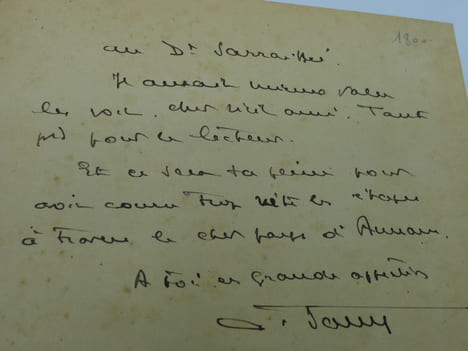 au Dr
aurait mieux valu
les voir, cher vieil ami. Tant
pis pour le lecteur.
Et ce sera ta peine pour
avoir couru trop vite les étapes
à travers le cher pays d'Annam.
A toi en grande affection